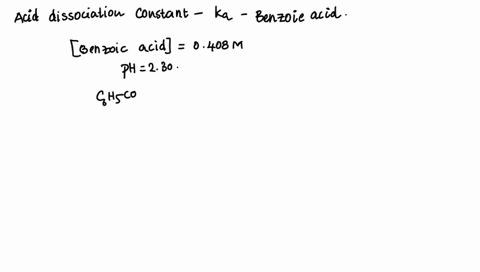 Acid dissociation Constant - Ka - Benzoic acid.
[Benzoic acid] = 0.408 M
PH = 2.30.
C6H5CO